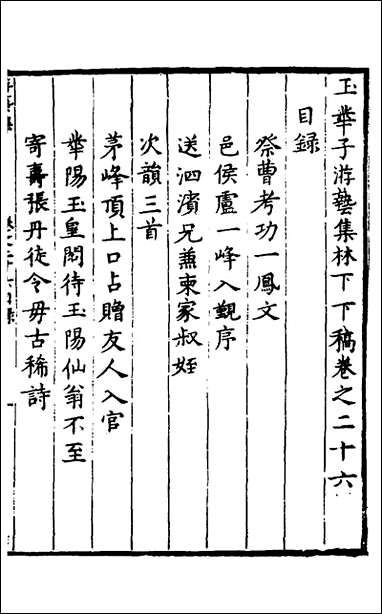 玉華子游藝集林下下稿卷之二十六
目録
祭曹考功一鳳文
邑侯盧一峰入覲序
送泗濱兄兼柬家叔姪
次韻三首
茅峰頂上口占贈友人入官
華陽玉皇閣待玉陽仙翁不至
寄壽張丹徒令毋古稀詩